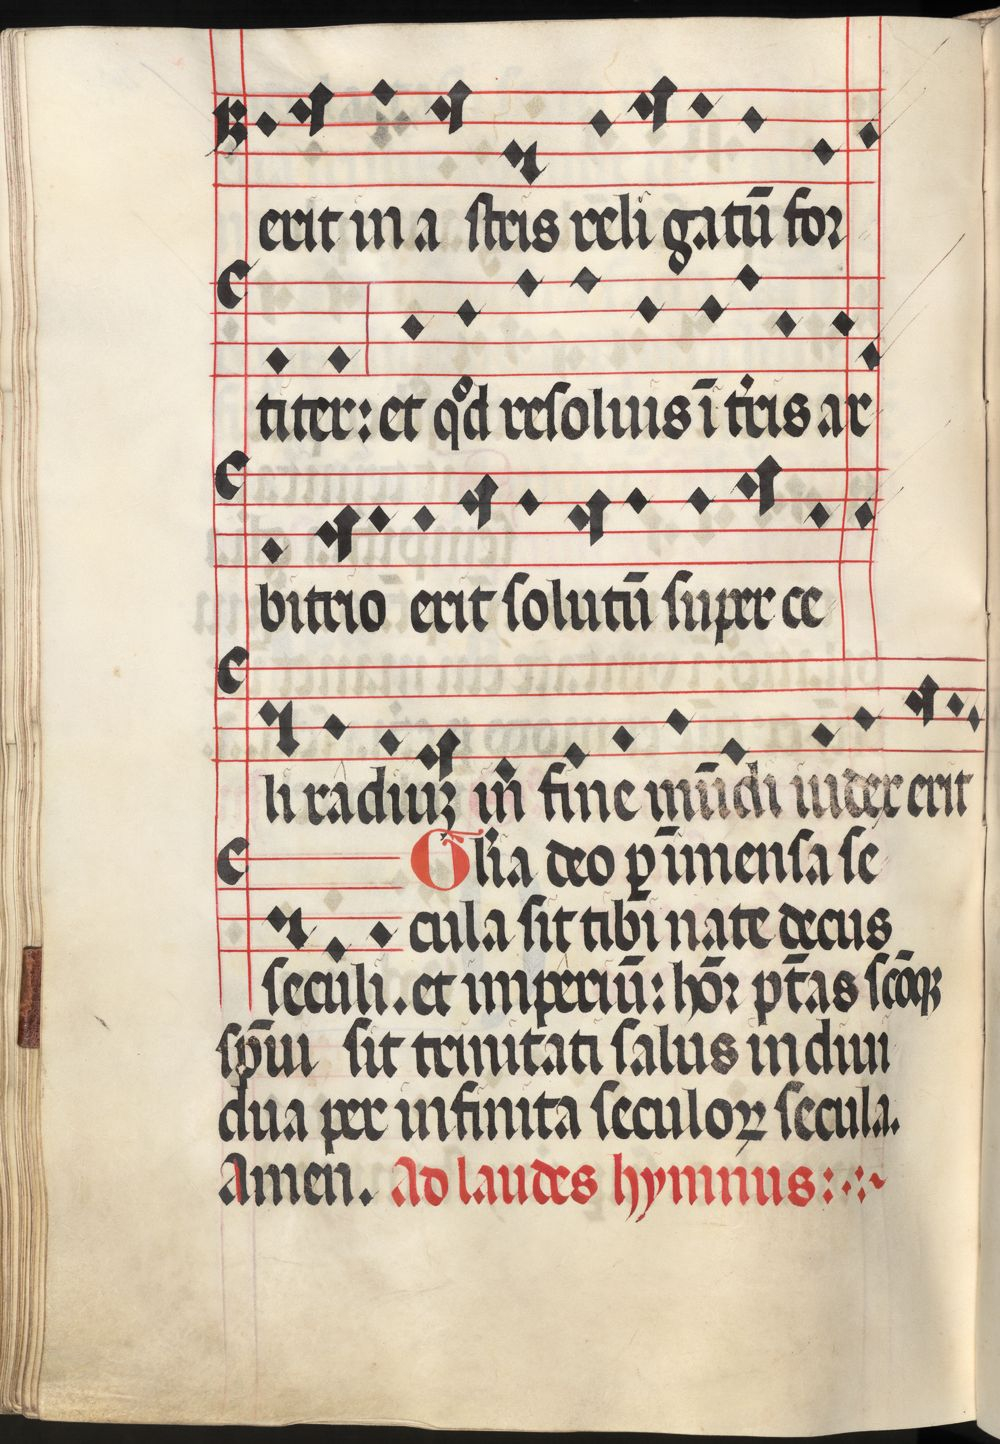 erit in a stris reli gatū for
titer: et qͦd resoluis ī tr̄is ar
bitrio erit solutū super ce
li radiuꝫ in̄ fine mūdi iudex erit
Gl̄ia deo ꝑ īmensa se
cula sit tibi nate decus
seculi. et imperiū: hōꝛ pt̄as scōqꝫ
sp̄ui sit trinitati salus indiui
dua per infinita seculoꝝ secula.
Amen. Ad laudes hymnus: